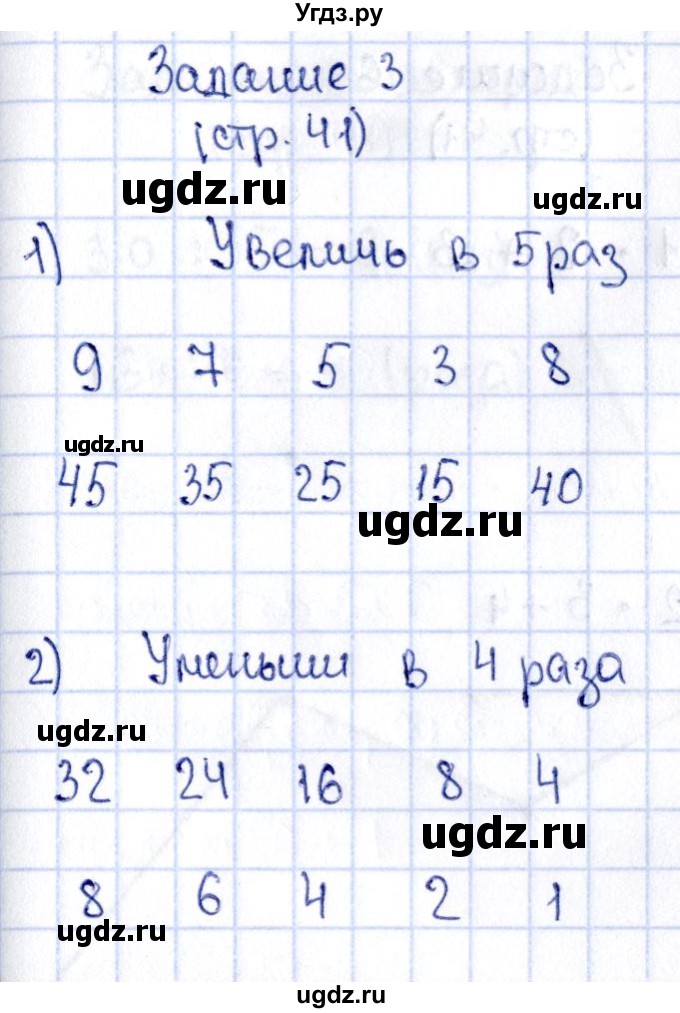 Угдз.ру
Задание 3
(стр. 41)
ugdz.ru
ugdz.ru
1) Увеличь в 5 раз
9 7 5 3 8
ugdz.ru
45 35 25 15 40
ugdz.ru
2) Уменьши в 4 раза
ugdz.ru
32 24 16 8 4
ugdz.ru
8 6 4 2 1
ugdz.ru
ugdz.ru